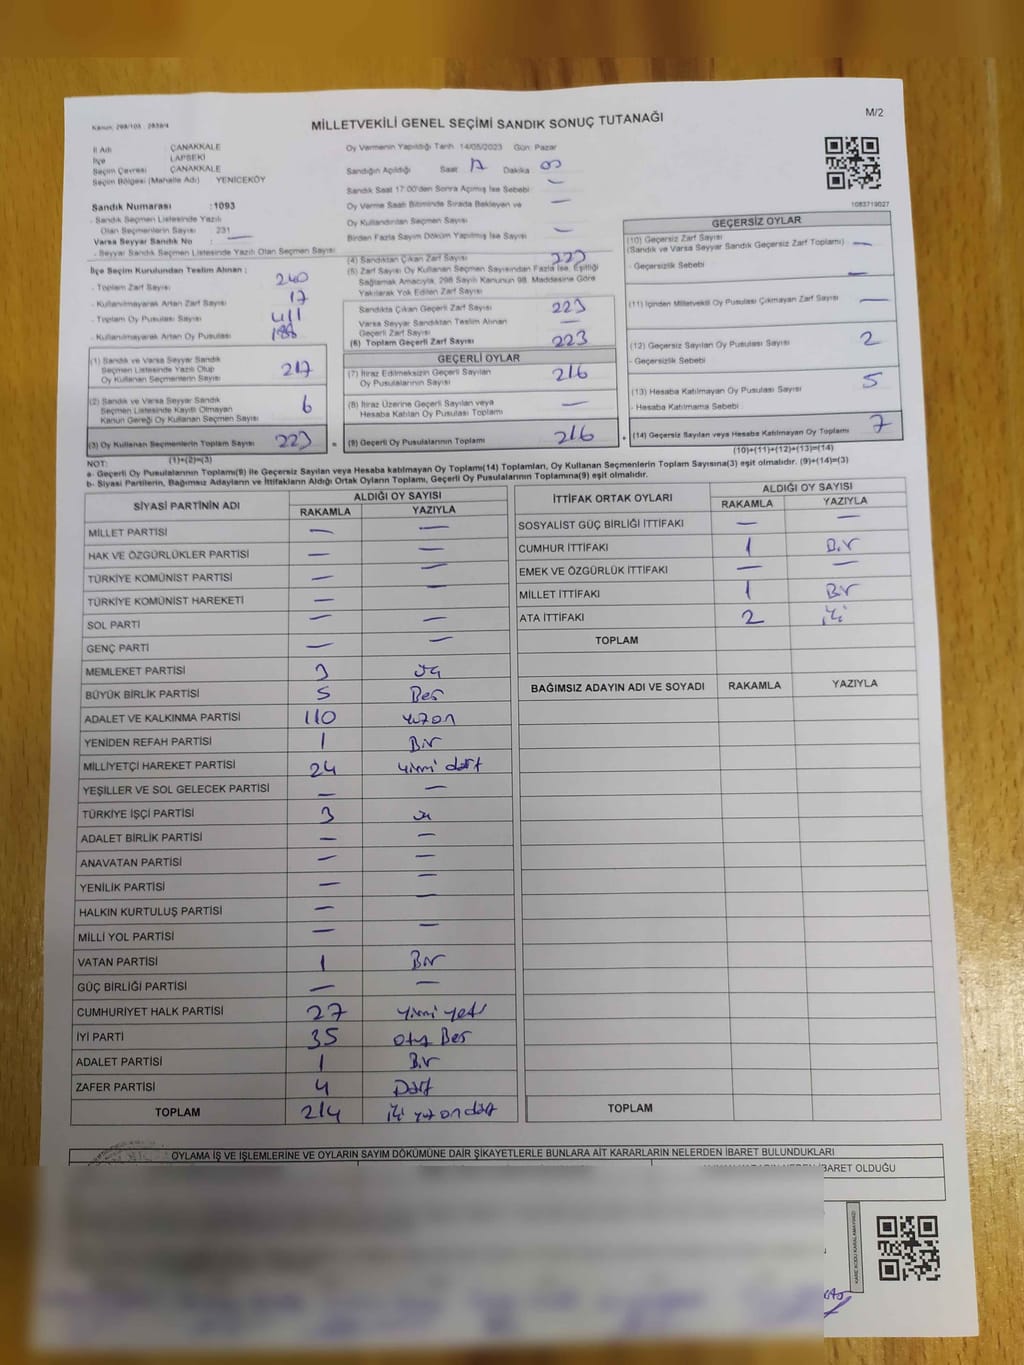 Kanun: 298/105 - 2839/4
M/2
MİLLETVEKİLİ GENEL SEÇİMİ SANDIK SONUÇ TUTANAĞI
İl Adı : ÇANAKKALE
İlçe : LAPSEKİ
Seçim Çevresi : ÇANAKKALE
Seçim Bölgesi (Mahalle Adı) YENİCEKÖY
Sandık Numarası : 1093
- Sandık Seçmen Listesinde Yazılı
Olan Seçmenlerin Sayısı 231
Varsa Seyyar Sandık No : —
- Seyyar Sandık Seçmen Listesinde Yazılı Olan Seçmen Sayısı
İlçe Seçim Kurulundan Teslim Alınan :
- Toplam Zarf Sayısı 240
- Kullanılmayarak Artan Zarf Sayısı 17
- Toplam Oy Pusulası Sayısı 411
- Kullanılmayarak Artan Oy Pusulası 188
(1) Sandık ve Varsa Seyyar Sandık
Seçmen Listesinde Yazılı Olup
Oy Kullanan Seçmenlerin Sayısı 217
(2) Sandık ve Varsa Seyyar Sandık
Seçmen Listesinde Kayıtlı Olmayan
Kanun Gereği Oy Kullanan Seçmen Sayısı 6
(3) Oy Kullanan Seçmenlerin Toplam Sayısı 223
(1)+(2)=(3)
Oy Vermenin Yapıldığı Tarih 14/05/2023 Gün Pazar
Sandığın Açıldığı Saat 17 Dakika 00
Sandık Saat 17:00'den Sonra Açılmış İse Sebebi —
Oy Verme Saati Bitiminde Sırada Bekleyen ve —
Oy Kullandırılan Seçmen Sayısı
Birden Fazla Sayım Döküm Yapılmış İse Sayısı —
(4) Sandıktan Çıkan Zarf Sayısı 223
(5) Zarf Sayısı Oy Kullanan Seçmen Sayısından Fazla İse, Eşitliği
Sağlamak Amacıyla, 298 Sayılı Kanunun 98. Maddesine Göre
Yakılarak Yok Edilen Zarf Sayısı
Sandıkta Çıkan Geçerli Zarf Sayısı 223
Varsa Seyyar Sandıktan Teslim Alınan
Geçerli Zarf Sayısı —
(6) Toplam Geçerli Zarf Sayısı 223
GEÇERLİ OYLAR
(7) İtiraz Edilmeksizin Geçerli Sayılan
Oy Pusulalarının Sayısı 216
(8) İtiraz Üzerine Geçerli Sayılan veya
Hesaba Katılan Oy Pusulası Toplamı —
= (9) Geçerli Oy Pusulalarının Toplamı 216 +
1083719027
GEÇERSİZ OYLAR
(10) Geçersiz Zarf Sayısı
(Sandık ve Varsa Seyyar Sandık Geçersiz Zarf Toplamı) —
- Geçersizlik Sebebi —
(11) İçinden Milletvekili Oy Pusulası Çıkmayan Zarf Sayısı —
(12) Geçersiz Sayılan Oy Pusulası Sayısı 2
- Geçersizlik Sebebi
(13) Hesaba Katılmayan Oy Pusulası Sayısı 5
- Hesaba Katılmama Sebebi
(14) Geçersiz Sayılan veya Hesaba Katılmayan Oy Toplamı 7
(10)+(11)+(12)+(13)=(14)
NOT:
a- Geçerli Oy Pusulalarının Toplamı(9) ile Geçersiz Sayılan veya Hesaba katılmayan Oy Toplamı(14) Toplamları, Oy Kullanan Seçmenlerin Toplam Sayısına(3) eşit olmalıdır. (9)+(14)=(3)
b- Siyasi Partilerin, Bağımsız Adayların ve İttifakların Aldığı Ortak Oyların Toplamı, Geçerli Oy Pusulalarının Toplamına(9) eşit olmalıdır.
SİYASİ PARTİNİN ADI ALDIĞI OY SAYISI
RAKAMLA YAZIYLA
MİLLET PARTİSİ — —
HAK VE ÖZGÜRLÜKLER PARTİSİ — —
TÜRKİYE KOMÜNİST PARTİSİ — —
TÜRKİYE KOMÜNİST HAREKETİ — —
SOL PARTİ — —
GENÇ PARTİ — —
MEMLEKET PARTİSİ 3 üç
BÜYÜK BİRLİK PARTİSİ 5 Beş
ADALET VE KALKINMA PARTİSİ 110 yüzon
YENİDEN REFAH PARTİSİ 1 Bir
MİLLİYETÇİ HAREKET PARTİSİ 24 yirmi dört
YEŞİLLER VE SOL GELECEK PARTİSİ — —
TÜRKİYE İŞÇİ PARTİSİ 3 üç
ADALET BİRLİK PARTİSİ — —
ANAVATAN PARTİSİ — —
YENİLİK PARTİSİ — —
HALKIN KURTULUŞ PARTİSİ — —
MİLLİ YOL PARTİSİ — —
VATAN PARTİSİ 1 Bir
GÜÇ BİRLİĞİ PARTİSİ — —
CUMHURİYET HALK PARTİSİ 27 yirmi yedi
İYİ PARTİ 35 otuz Beş
ADALET PARTİSİ 1 Bir
ZAFER PARTİSİ 4 Dört
TOPLAM 214 iki yüz on dört
İTTİFAK ORTAK OYLARI ALDIĞI OY SAYISI
RAKAMLA YAZIYLA
SOSYALİST GÜÇ BİRLİĞİ İTTİFAKI — —
CUMHUR İTTİFAKI 1 Bir
EMEK VE ÖZGÜRLÜK İTTİFAKI — —
MİLLET İTTİFAKI 1 Bir
ATA İTTİFAKI 2 iki
TOPLAM
BAĞIMSIZ ADAYIN ADI VE SOYADI RAKAMLA YAZIYLA
TOPLAM
OYLAMA İŞ VE İŞLEMLERİNE VE OYLARIN SAYIM DÖKÜMÜNE DAİR ŞİKAYETLERLE BUNLARA AİT KARARLARIN NELERDEN İBARET BULUNDUKLARI
İBARET OLDUĞU
KARE KODU KARALAMAYINIZ!